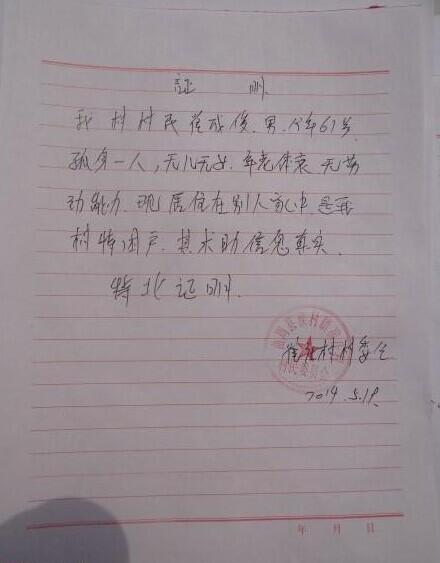 证 明
我村村民崔成俊、男、今年61岁、
孤身一人，无儿无女、年老体衰、无劳
动能力、现居住在别人家中、是我
村特困户、其求助信息真实、
特此证明、
村村委会
村民委员会
2014.5.19.
年 月 日